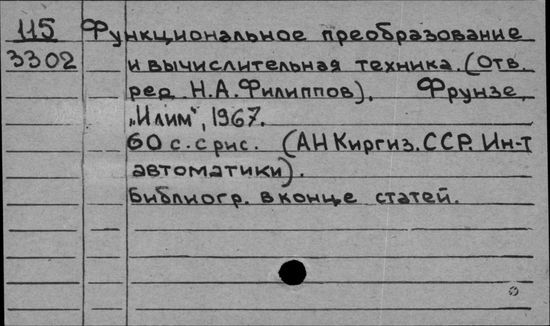 115 Функциональное преобразование
3302 и вычислительная техника. (Отв.
ред. Н.А.Филиппов). Фрунзе,
„Илим", 1967.
60 с. с рис. (АН Киргиз. ССР. Ин-т
автоматики).
Библиогр. в конце статей.